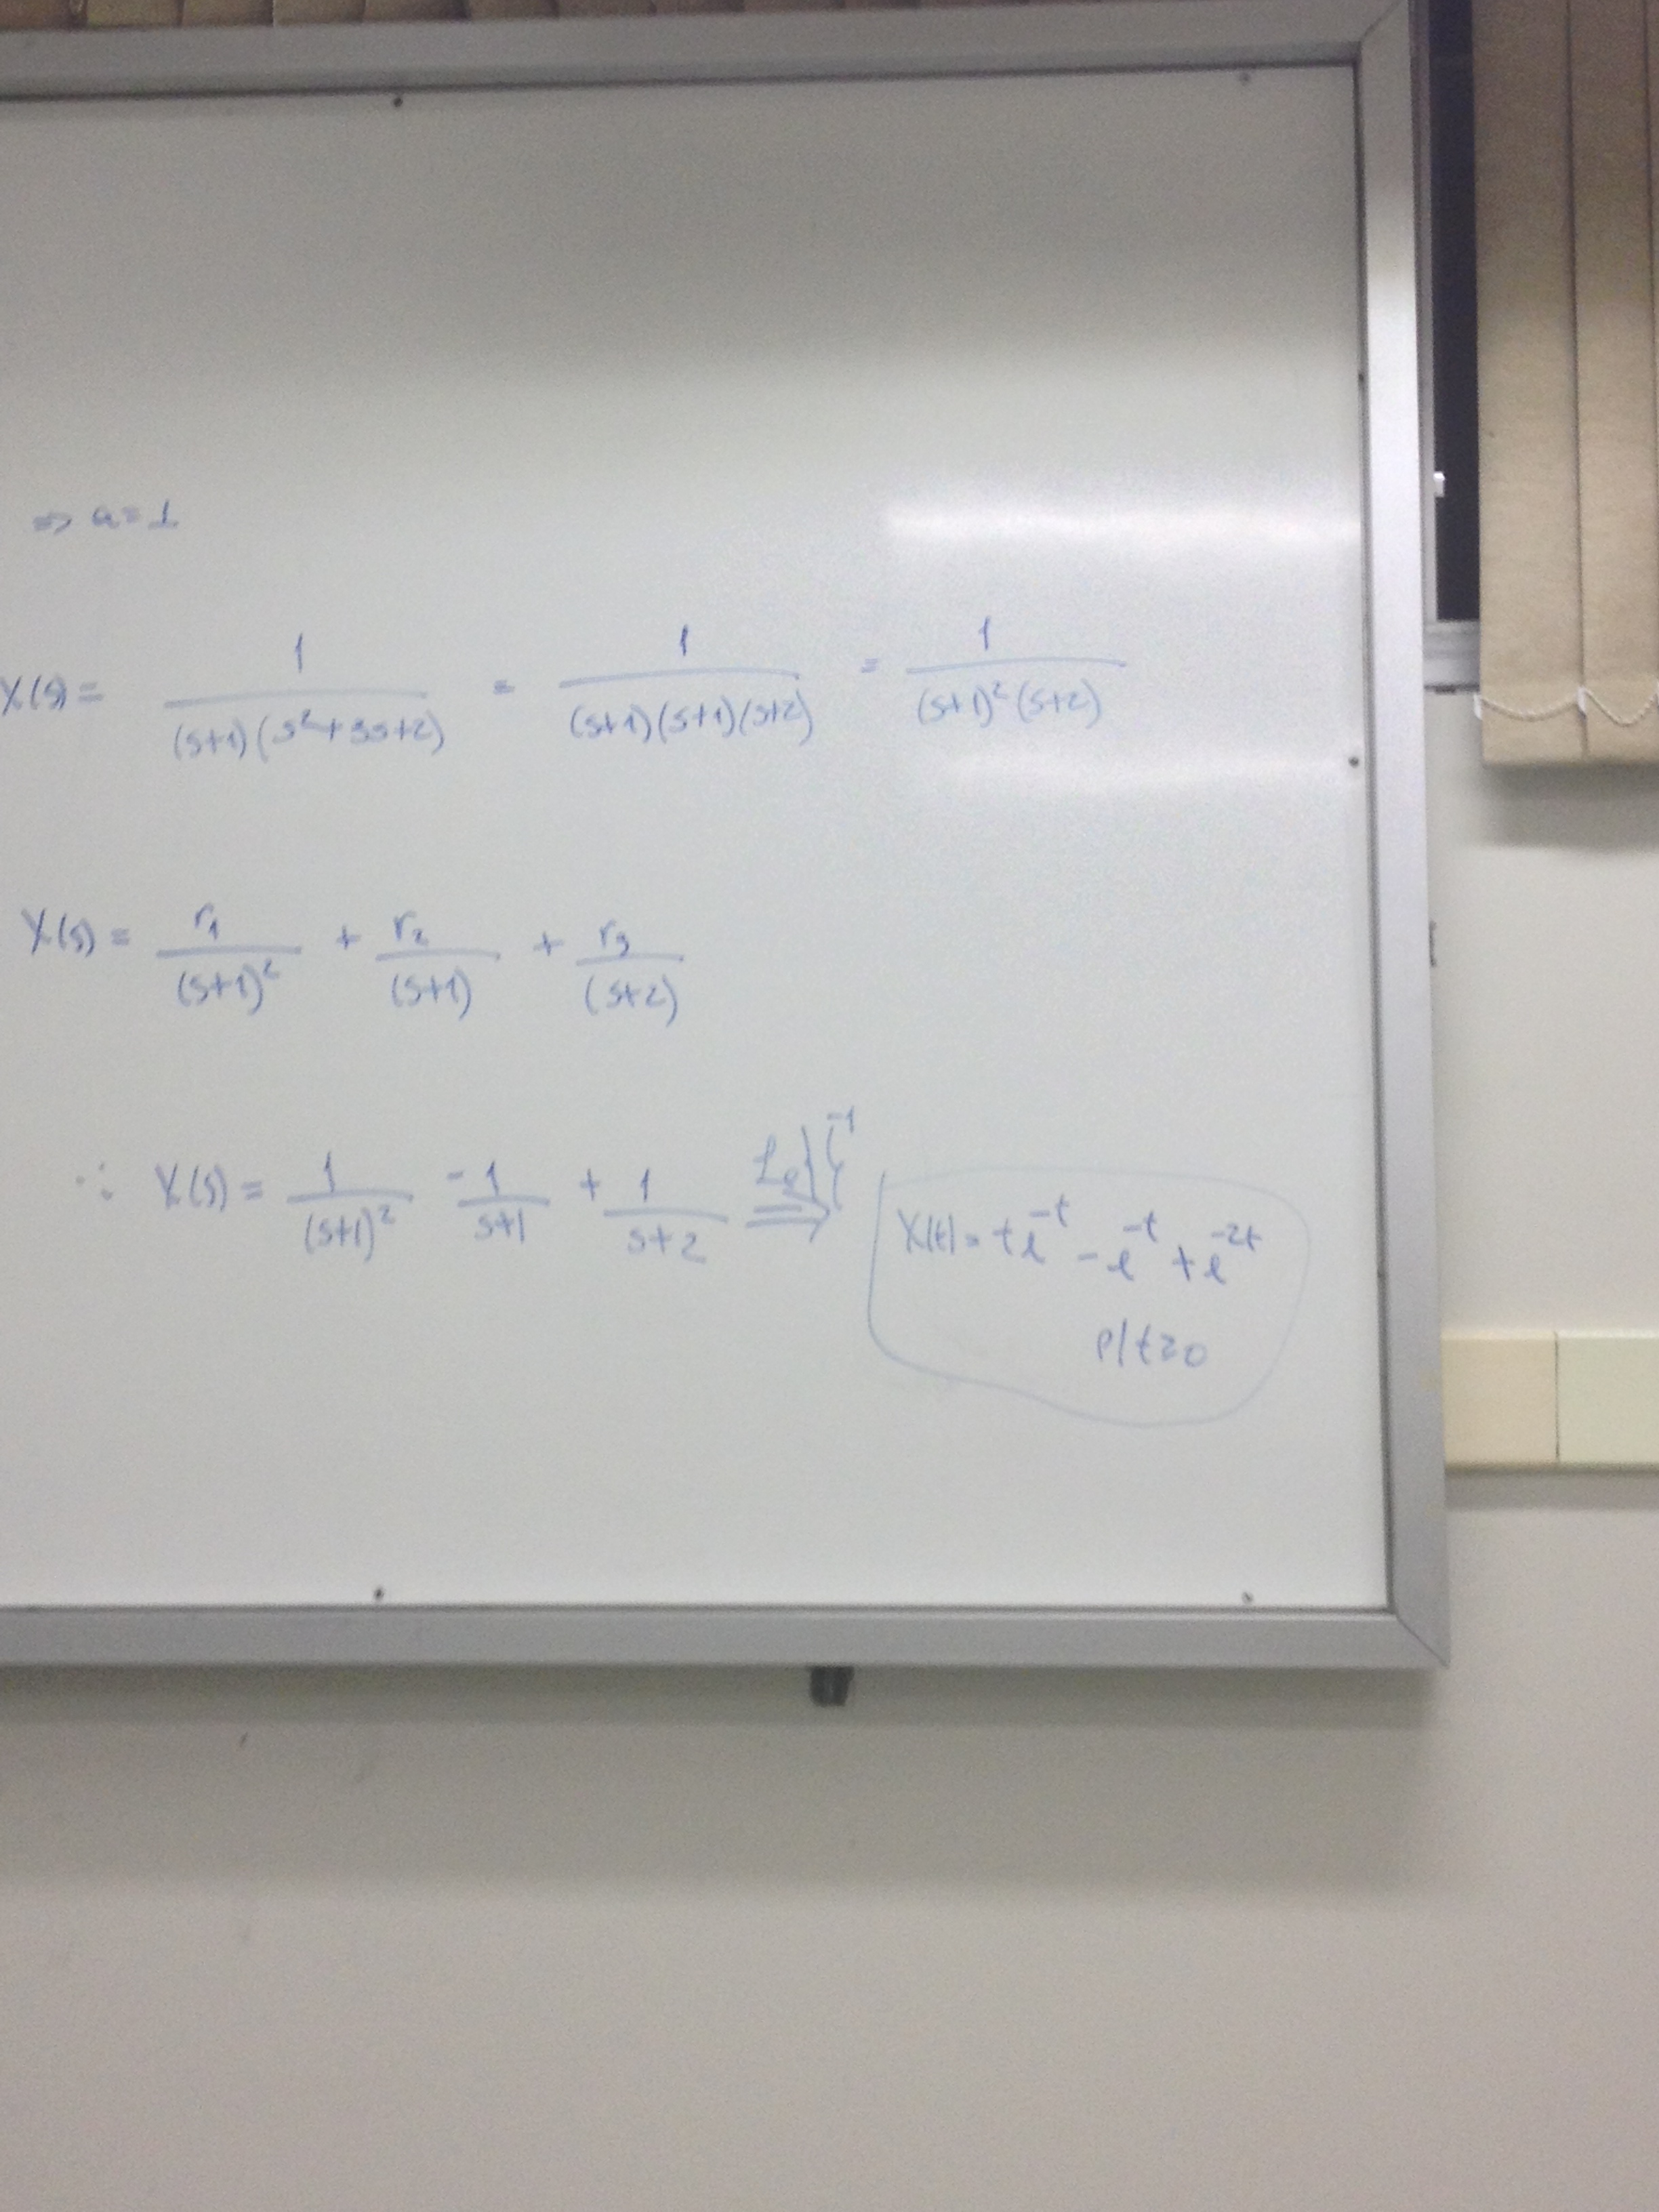 ⇒ a=1
X(s) = 1/((s+1)(s²+3s+2)) = 1/((s+1)(s+1)(s+2)) = 1/((s+1)²(s+2))
X(s) = r₁/(s+1)² + r₂/(s+1) + r₃/(s+2)
∴ X(s) = 1/(s+1)² -1/s+1 + 1/s+2 ⇒
X(t) = te^-t - e^-t + e^-2t
p/ t≥0